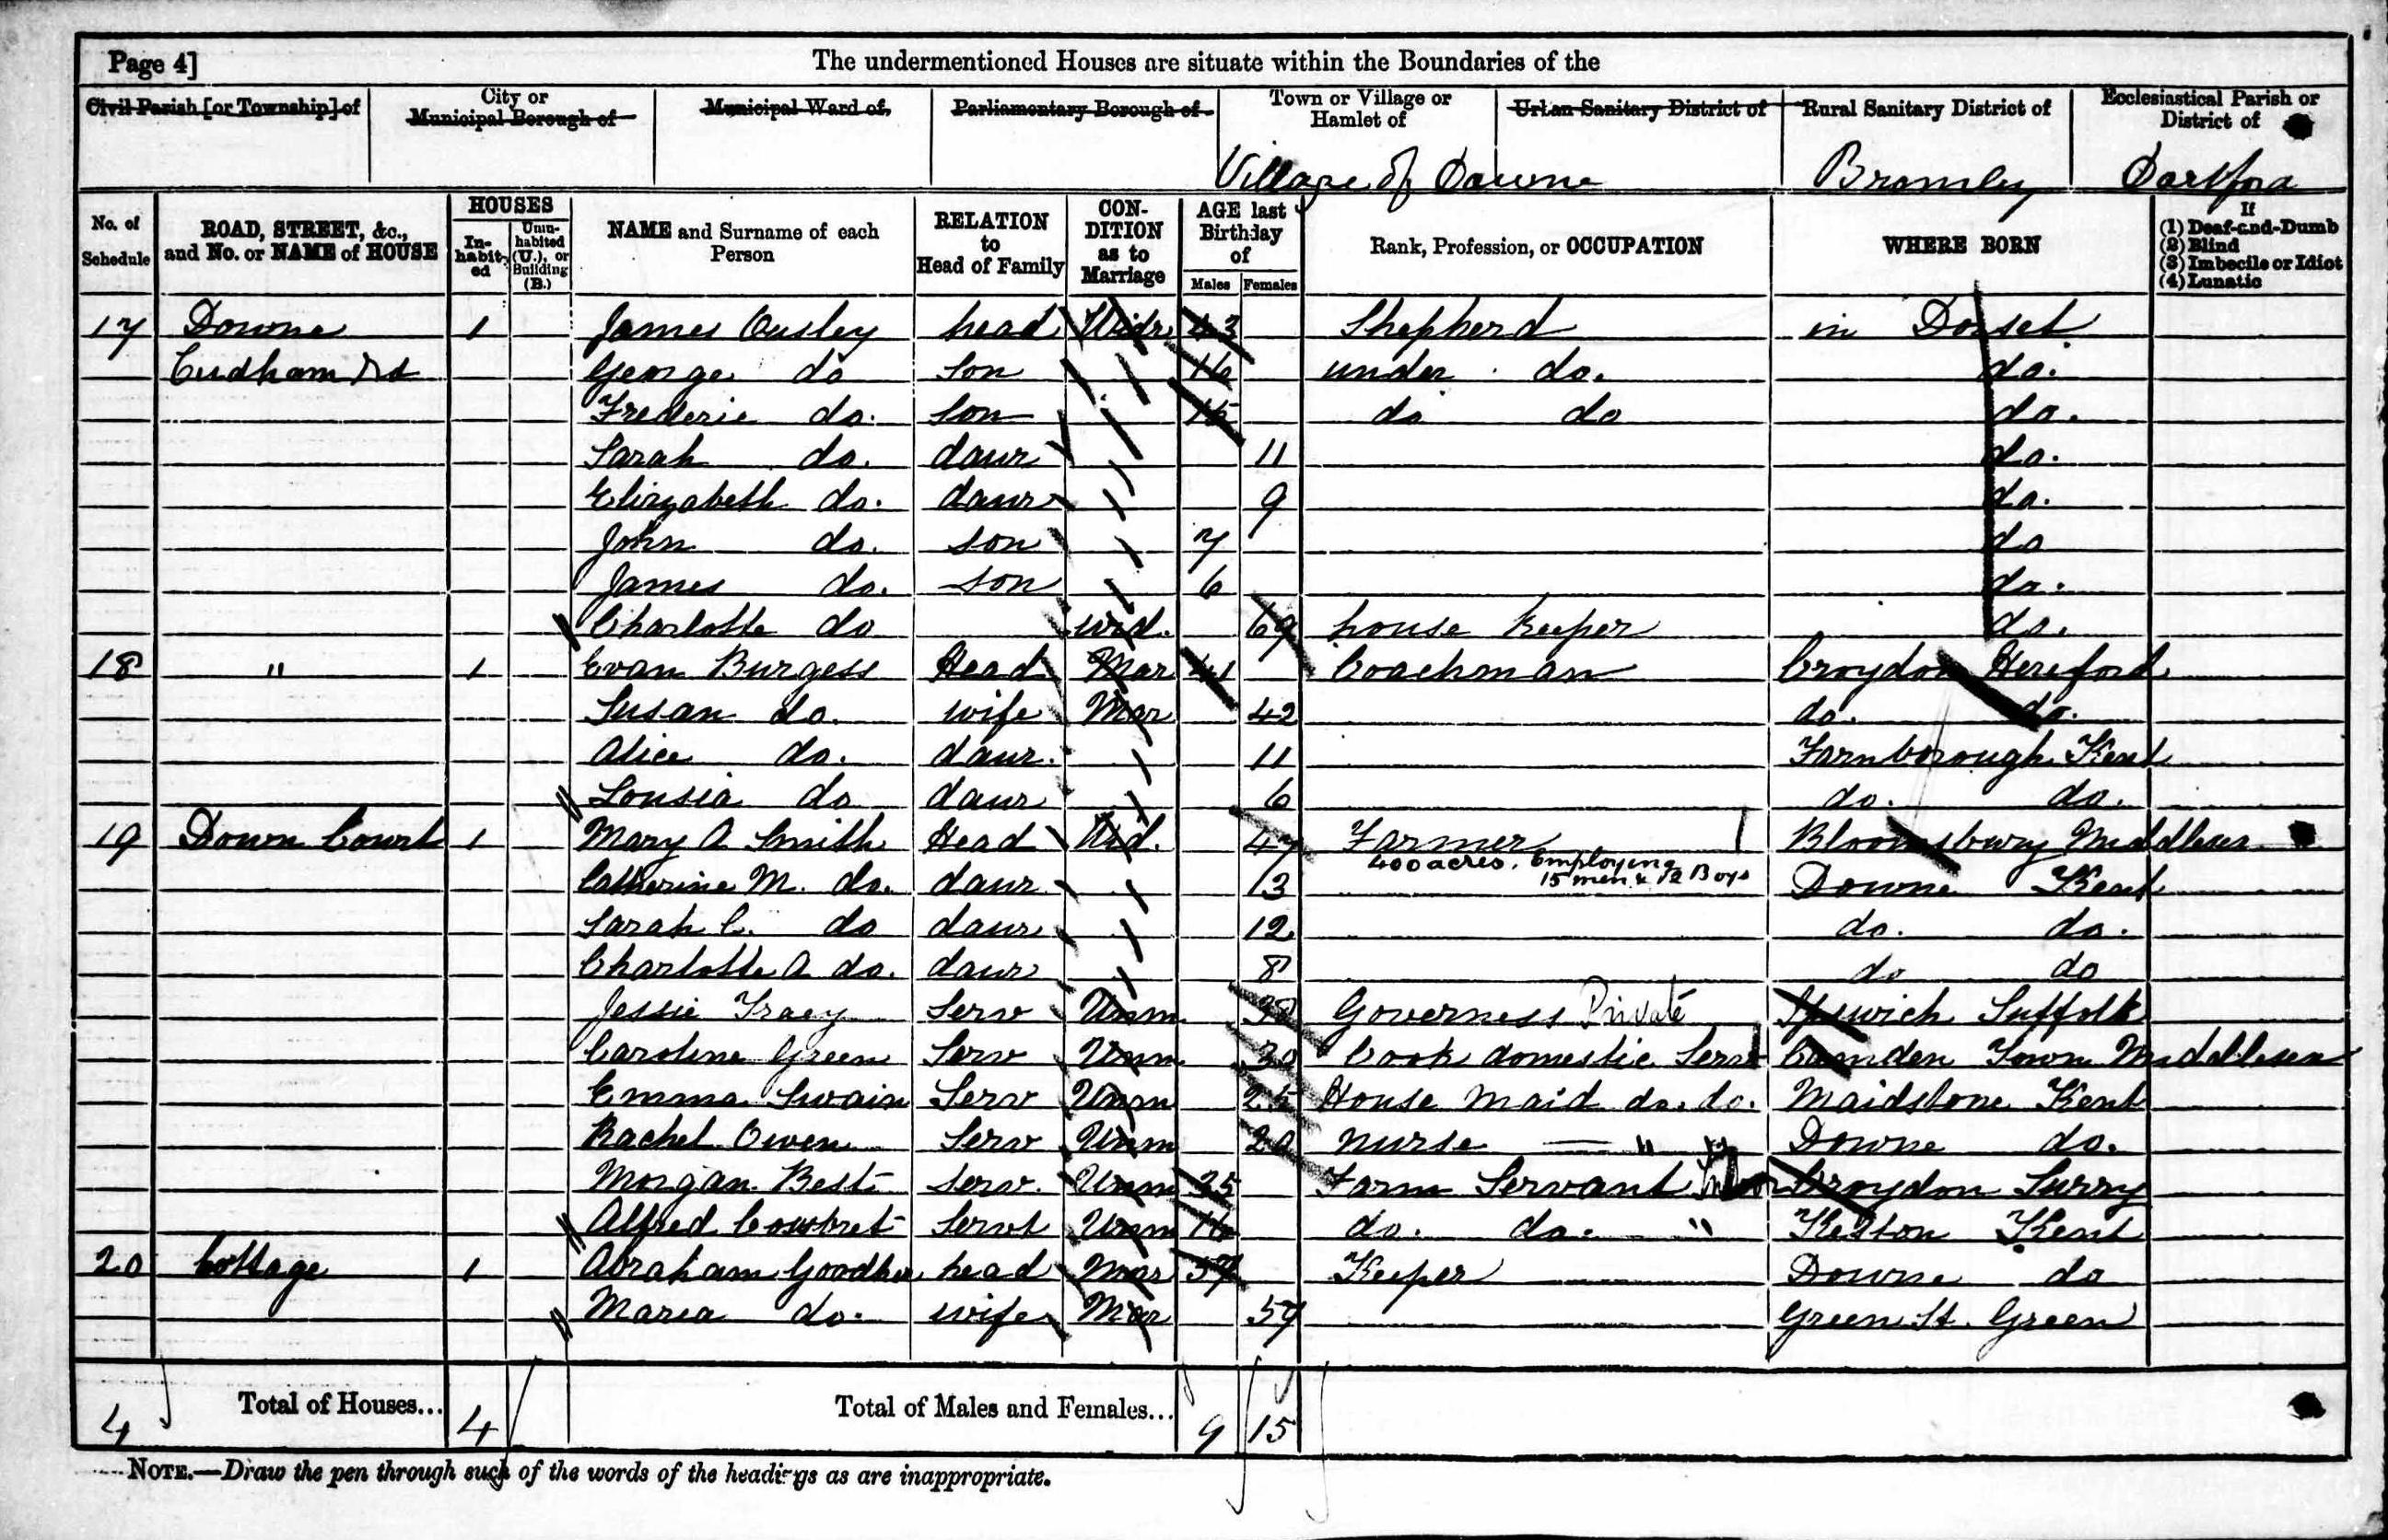 Page 4]
The undermentioned Houses are situate within the Boundaries of the
Civil Parish [or Township] of
City or Municipal Borough of
Municipal Ward of
Parliamentary Borough of
Town or Village or Hamlet of
Urban Sanitary District of
Rural Sanitary District of
Ecclesiastical Parish or District of
Village of Downe Bromley Dartford
No. of Schedule
ROAD, STREET, &c., and No. or NAME of HOUSE
HOUSES
In-habit-ed
Unin-habited (U.), or Building (B.)
NAME and Surname of each Person
RELATION to Head of Family
CON-DITION as to Marriage
AGE last Birthday of
Males Females
Rank, Profession, or OCCUPATION
WHERE BORN
If
(1) Deaf-and-Dumb
(2) Blind
(3) Imbecile or Idiot
(4) Lunatic
17 Downe 1 James Ousley head Widr 43 Shepherd in Dorset
Cudham Rd George do son 16 under do. do.
Frederic do. son 15 do do do.
Sarah do. daur 11 do.
Elizabeth do. daur 9 do.
John do. son 7 do
James do. son 6 do.
Charlotte do wid. 69 house Keeper do.
18 " 1 Evan Burgess Head Mar 41 Coachman Croydon Hereford.
Susan do. wife Mar 42 do. do.
Alice do. daur. 11 Farnborough Kent
Lousia do daur 6 do. do.
19 Down Court 1 Mary A Smith Head Wid. 47 Farmer Bloomsbury Middlesex
400 acres. Employing
15 men & 12 Boys
Catherine M. do. daur 13 Downe Kent
Sarah C. do daur 12 do. do.
Charlotte A do. daur 8 do do
Jessie Tracy Serv Unm 38 Governess Private Ipswich Suffolk
Caroline Green Serv Unm 30 Cook domestic Serv Camden Town Middlesex
Emma Swain Serv Unm 25 House Maid do. do. Maidstone Kent
Rachel Owen Serv Unm 20 Nurse — " " Downe do.
Morgan Best Serv. Unm 25 Farm Servant Indoor Croydon Surry
Alfred Servt Unm 16 do. do. " Keston Kent
20 Cottage 1 Abraham Goodhew head Mar 57 Keeper Downe do
Maria do. wife Mar 59 Green St. Green
4 Total of Houses... 4 Total of Males and Females... 9 15
NOTE.—Draw the pen through such of the words of the headings as are inappropriate.